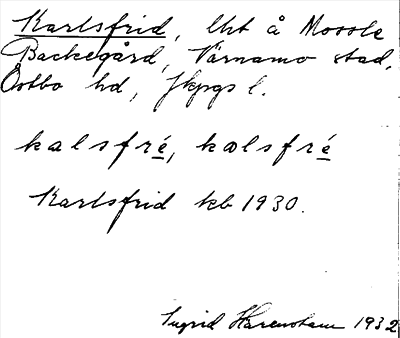 Karlsfrid, lht å Mossle
Backegård, Värnamo stad,
Östbo hd, Jkpgs l.
kalsfré, kalsfré
Karlsfrid kb 1930.
Ingrid Harenstam 1932